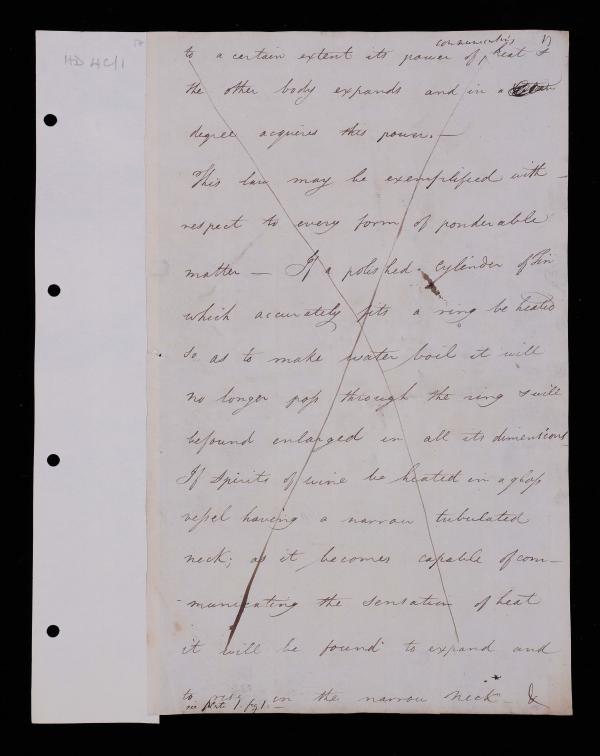 HD 4C/1
communicating 17
to a certain extent its power of heat &
the other body expands and in a
degree acquires this power.—
This law may be exemplified with
respect to every form of ponderable
matter — If a polished cylinder of Tin
which accurately fits a ring be heated
so as to make water boil it will
no longer pass through the ring & will
be found enlarged in all its dimensions
If spirits of wine be heated in a glass
vessel having a narrow tubulated
neck; as it becomes capable of com–
–municating the sensation of heat
it will be found to expand and
to rise in the narrow neck &
Plate 1. fig 1.